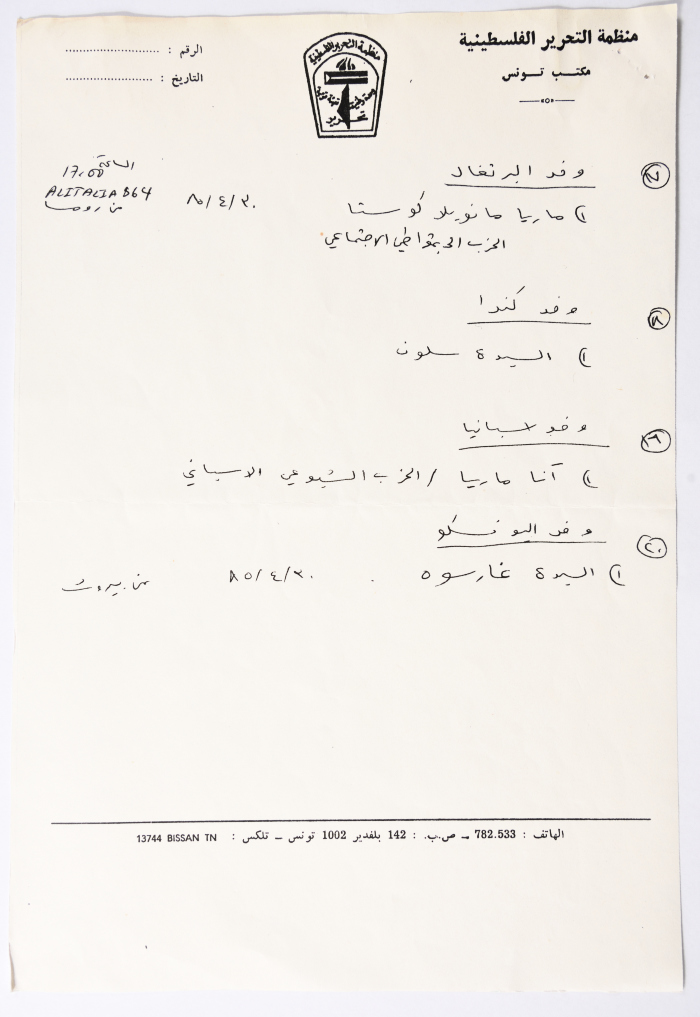 منظمة التحرير الفلسطينية
مكتب تونس
الرقم : ........................
التاريخ : ........................
منظمة التحرير الفلسطينية
وحدة وطنية تعبئة قومية
تحرير
٧ وفد البرتغال
١) ماريا مانويلا كوستا ٨٥/٤/٣٠ الساعة 17,00
ALITALIA 864
من روما
الحزب الديمقراطي الاجتماعي
٨ وفد كندا
١) السيدة سلون
١٦ وفد اسبانيا
١) آنا ماريا / الحزب الشيوعي الاسباني
٢٠ وفد اليونسكو
١) السيدة غارسوه ٨٥/٤/٣٠ من بيروت
الهاتف : 782.533 – ص.ب. : 142 بلفدير 1002 تونس – تلكس : 13744 BISSAN TN